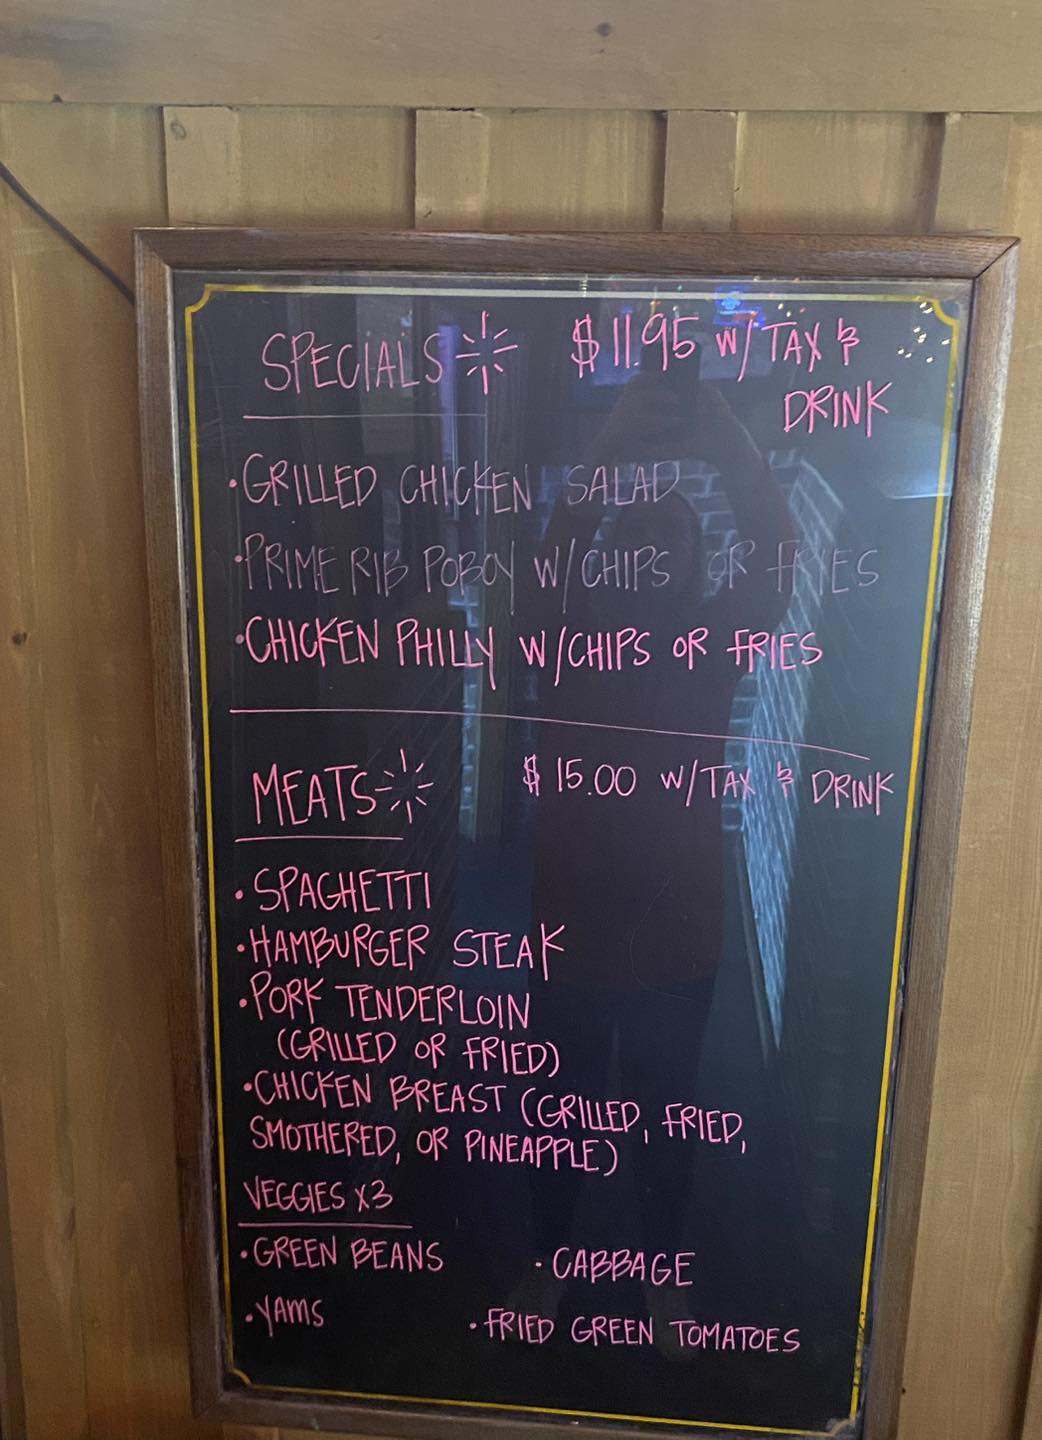 SPECIALS $11.95 W/ TAX &
DRINK
• GRILLED CHICKEN SALAD
• PRIME RIB POBOY W/CHIPS OR FRIES
• CHICKEN PHILLY W/CHIPS OR FRIES
MEATS $15.00 W/TAX & DRINK
• SPAGHETTI
• HAMBURGER STEAK
• PORK TENDERLOIN
(GRILLED OR FRIED)
• CHICKEN BREAST (GRILLED, FRIED,
SMOTHERED, OR PINEAPPLE)
VEGGIES X3
• GREEN BEANS • CABBAGE
• YAMS • FRIED GREEN TOMATOES